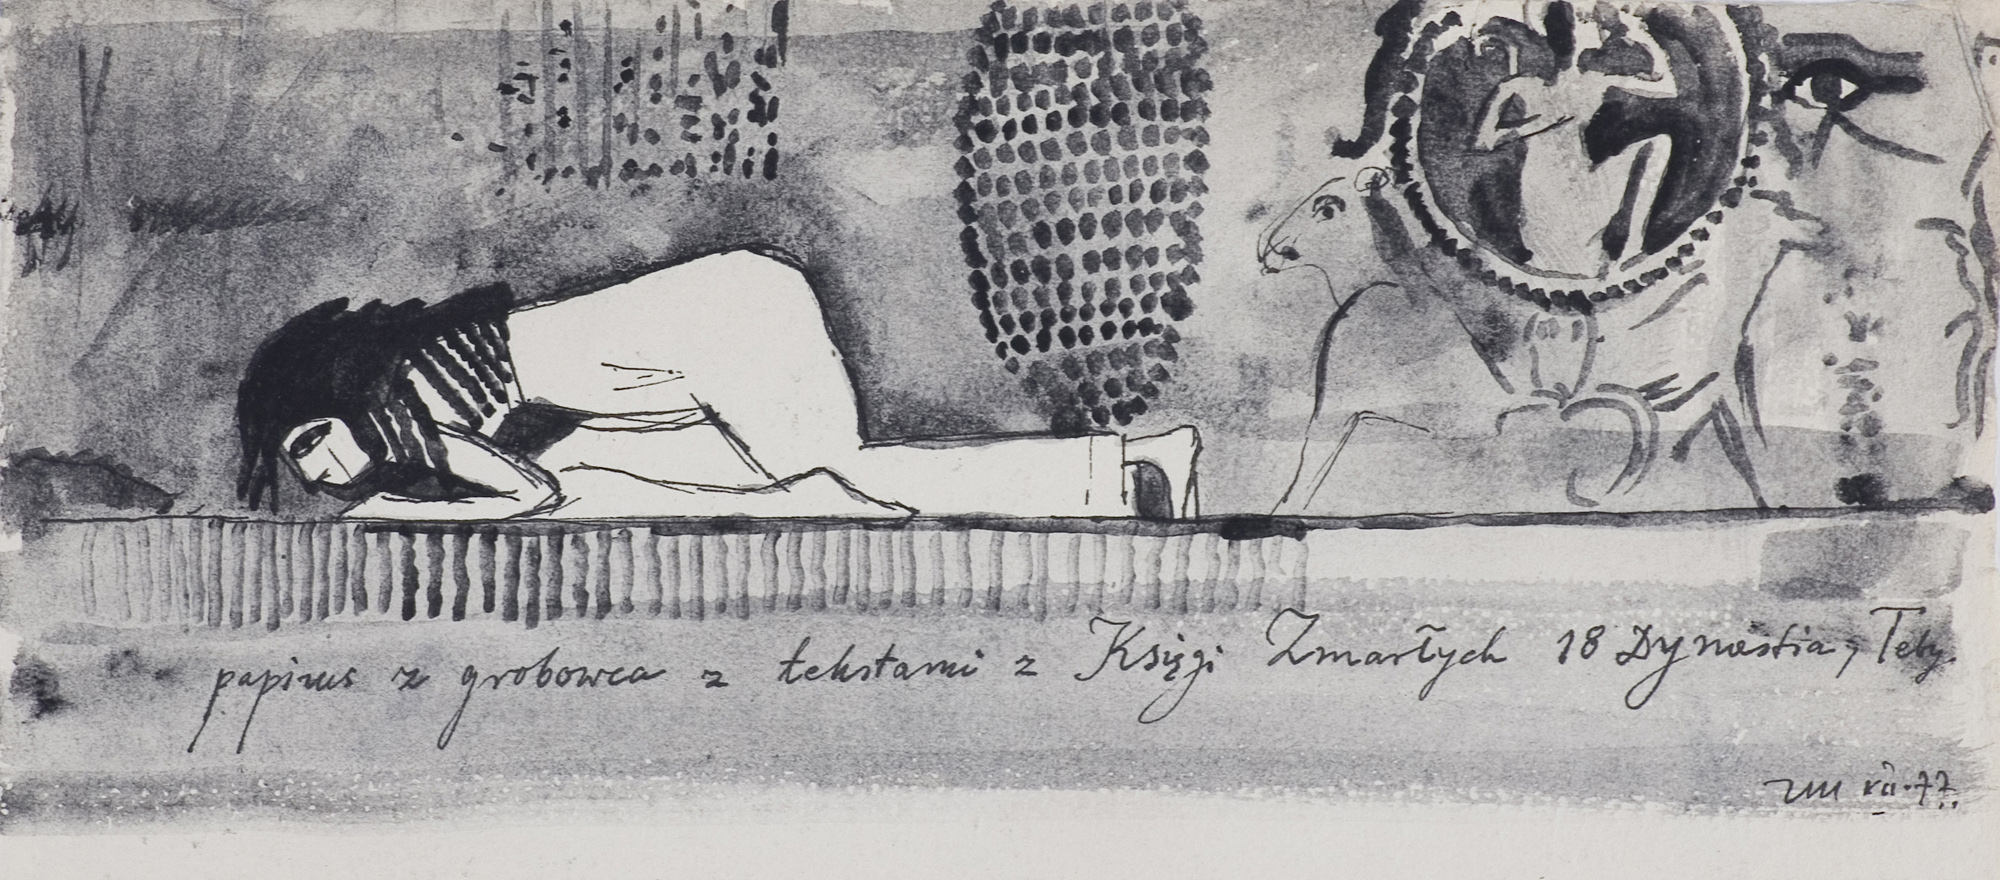 papirus z grobowca z tekstami z Księgi Zmarłych 18 Dynastia, Teby.
77